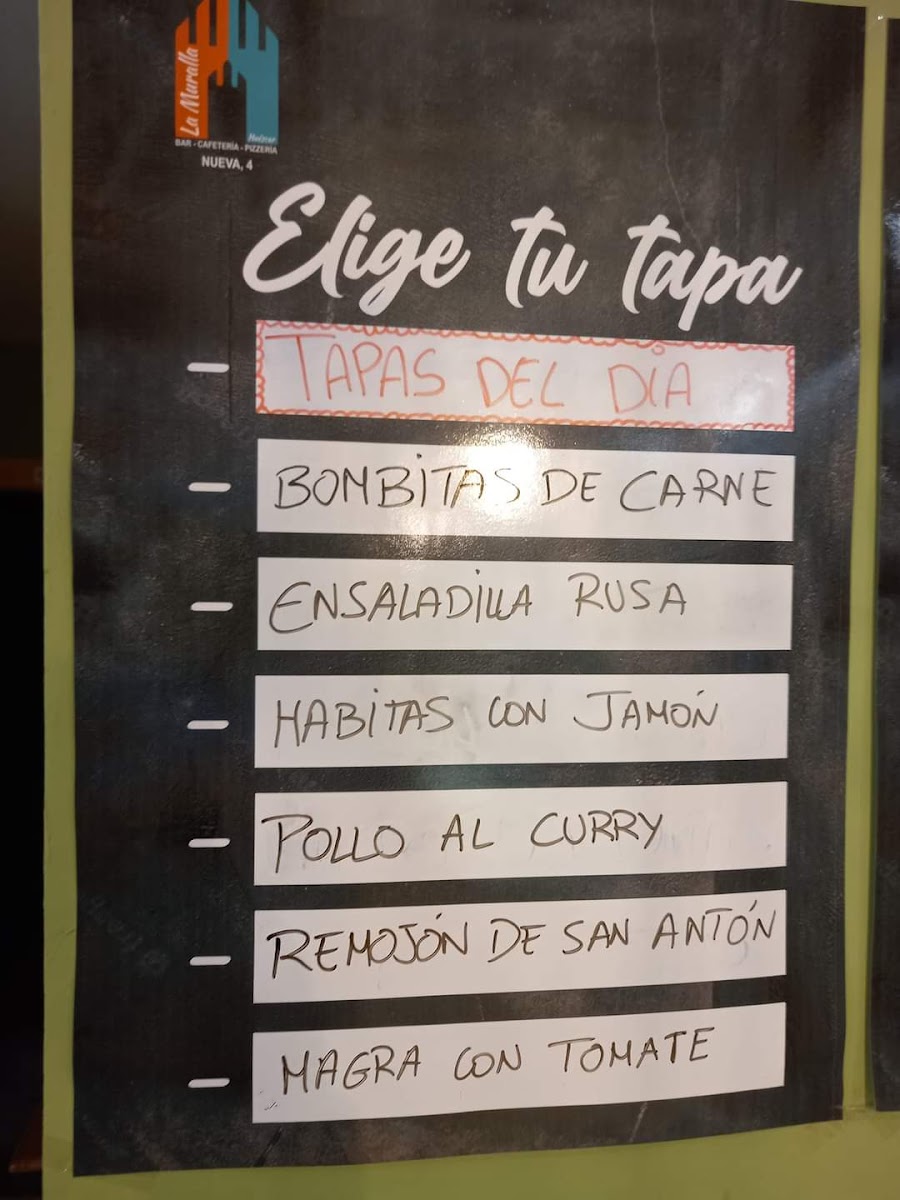 La Muralla
Huéscar
BAR - CAFETERÍA - PIZZERÍA
NUEVA, 4
Elige tu tapa
TAPAS DEL DÍA
BOMBITAS DE CARNE
ENSALADILLA RUSA
HABITAS CON JAMÓN
POLLO AL CURRY
REMOJÓN DE SAN ANTÓN
MAGRA CON TOMATE